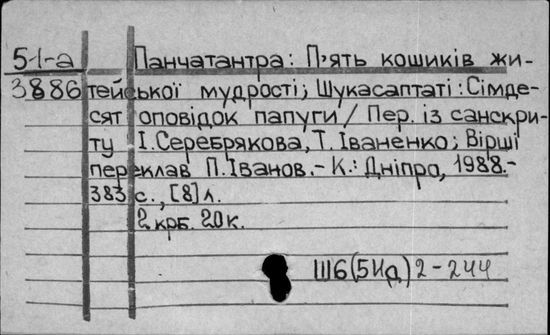 5-І-а Панчатантра: П'ять кошиків жи-
3886 тейської мудрості; Шукасаптаті: Сімде-
сят оповідок папуги / Пер. із санскри-
ту І. Серебрякова, Т. Іваненко; Вірші
переклав П. Іванов.- К.: Дніпро, 1988.-
383 с., [8] л.
2 крб. 20 к.
Ш6(5Ид)2-244